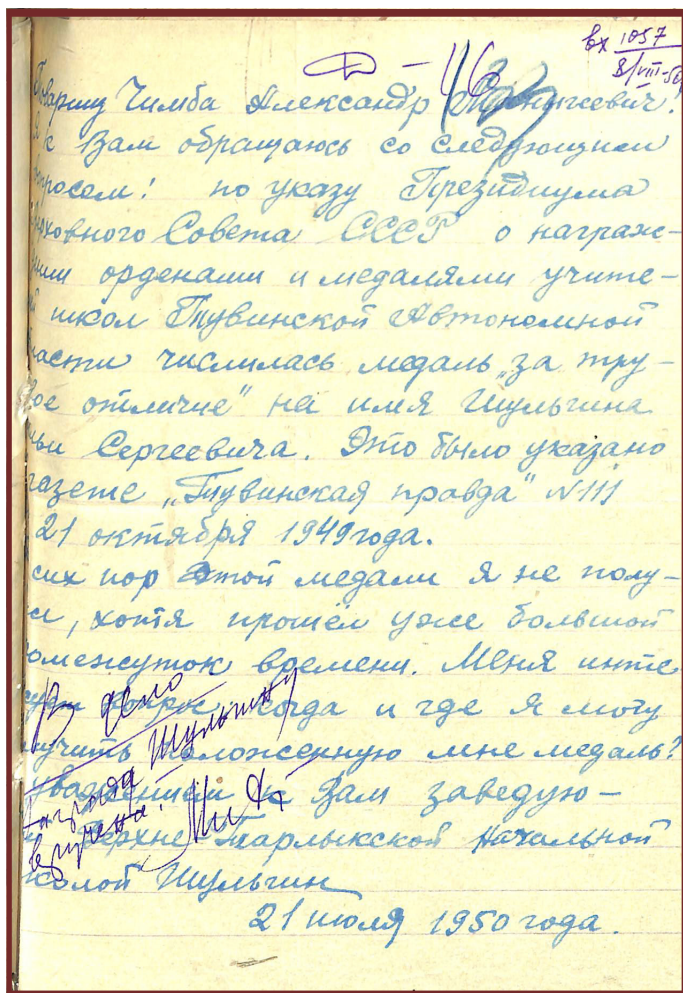 вх 1057
8/VIII-50
D-46
Товарищ Чимба Александр
к Вам обращаюсь со следующим
вопросом: по указу Президиума
рховного Совета СССР о награж-
нии орденами и медалями учите-
й школ Тувинской Автономной
ласти числилась медаль „за тру-
вое отличие" на имя Шульгина
ьи Сергеевича. Это было указано
газете „Тувинская правда" №111
21 октября 1949 года.
сих пор этой медали я не полу-
л, хотя прошёл уже большой
ромежуток времени. Меня инте
когда и где я могу
лучить положенную мне медаль?
уважением к Вам заведую-
Верхне Тарлыкской Начальной
колой Шульгин
21 июля 1950 года.
В дело
Шульгину
Награда
вручена.